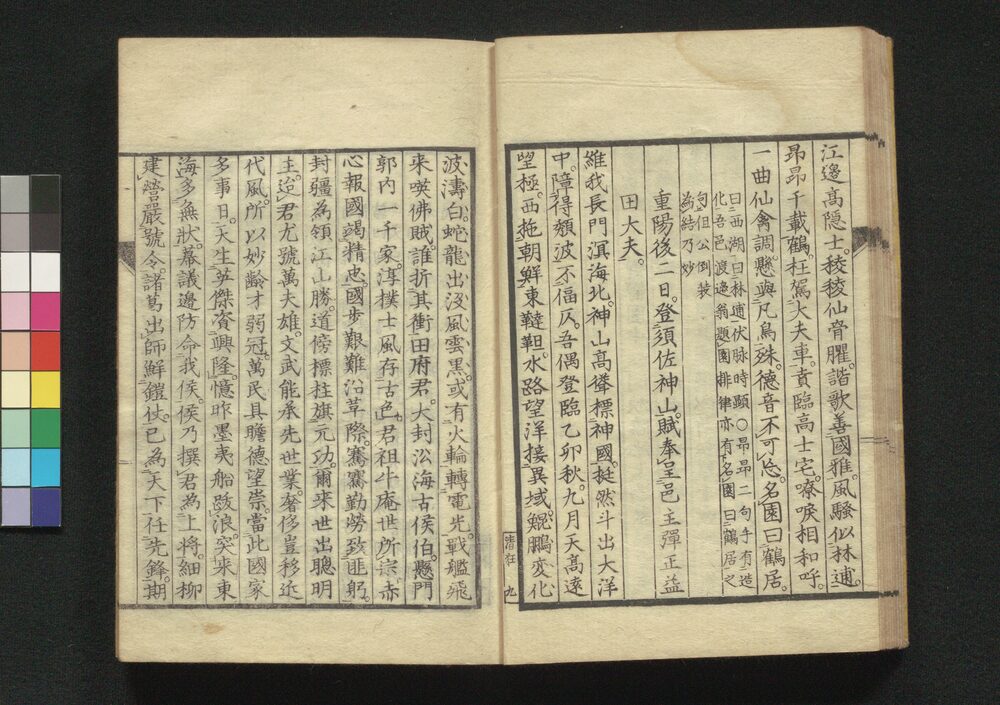 江邊高隱士。稜稜仙骨臞。諧歌善國雅。風騷似林逋。
昂昂千載鶴。枉駕大夫車。賁臨高士宅。嘹唳相和呼。
一曲仙禽調。懸與凡鳥殊。德音不可忘。名園曰鶴居。
曰西湖曰林逋伏脉時顯〇昂昂二句手有造
化吾邑渡邊翁題園排律亦有名園曰鶴居之
句但公倒裝
為結乃妙
重陽後二日。登須佐神山賦奉呈邑主彈正益
田大夫。
維我長門溟海北。神山高聳標神國。挺然斗出大洋
中。障得頹波不偪仄。吾偶登臨乙卯秋。九月天高遠
望極。西拖朝鮮東韃靼。水路望洋接異域。鯤鵬変化
清狂 九
波濤白。蛇龍出沒風雲黑。或有火輪轉電光。戰艦飛
来暎佛賊。誰折其衝田府君。大封沿海古侯伯。懸門
郭内一千家。淳樸士風存古色。君祖牛庵世所宗。赤
心報國竭精忠。國步艱難沿草際。騫騫勤勞致匪躬。
封疆為領江山勝。道傍標柱旗元功。爾来世出聰明
主。迨君尤號萬夫雄。文武能承先世業。奢侈豈移近
代風。所以妙齡才弱冠。萬民具瞻德望崇。當此國家
多事日。天生英傑資興隆。憶昨墨夷船跋浪。突来東
海多無狀。幕議邊防命我侯。侯乃撰君為上將。細柳
建營嚴號令。諸葛出師鮮鎧仗。已為天下任先鋒。期